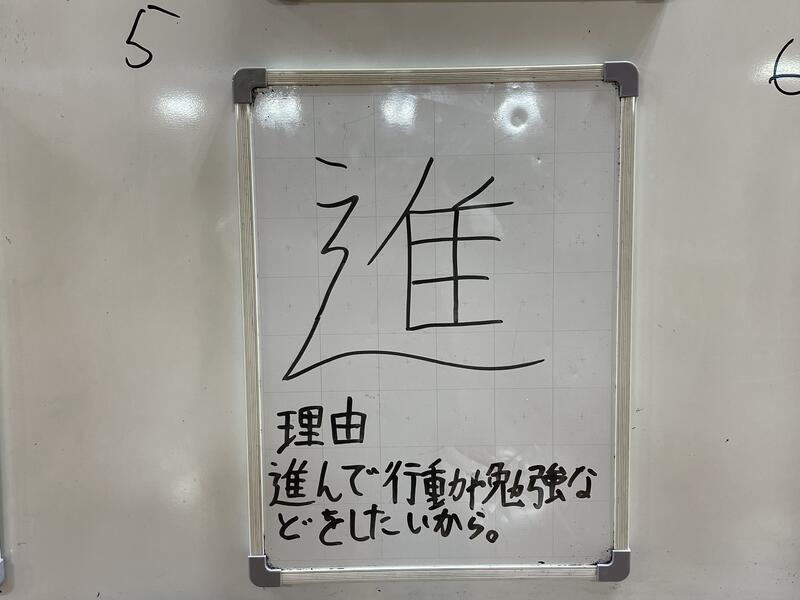 5
6
進
理由
進んで行動や勉強な
どをしたいから。